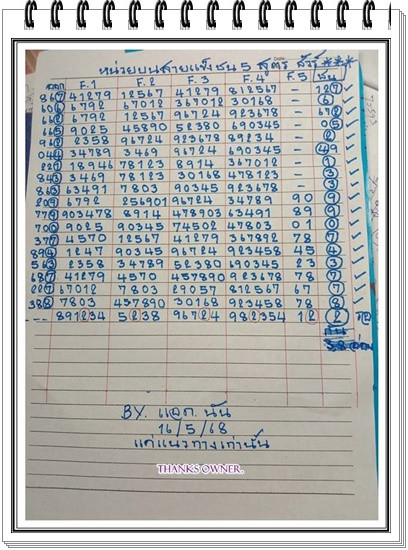 หน่วยบนสายแข็งชน 5 สูตร ชัวร์ ***
ออก F.1 F.2 F.3 F.4 F.5 ชน
867 41279 12567 41279 812567 – 127 ✓
606 6792 67012 367012 30168 – 6 ✓
662 6792 12567 96724 923678 – 672 ✓
665 9025 45890 52380 690345 – 05 ✓
962 2358 96724 923678 89234 – 2 ✓
044 34789 3469 96724 690345 – 49 ✓
221 18946 78123 8914 367012 – 1 ✓
843 3469 78123 30168 478123 – 3 ✓
863 63491 7803 90345 923678 – 3 ✓
209 6792 256901 96724 34789 90 9 ✓
779 903478 8914 478903 63491 89 9 ✓
700 9025 90345 74502 47803 01 0 ✓
377 4570 12567 41279 367892 78 7 ✓
894 1247 90345 96724 923458 45 4 ✓
563 2358 34789 52380 690345 23 3 ✓
687 41279 4570 457890 923678 78 7 ✓
227 67012 7803 29057 812567 67 7 ✓
388 7803 457890 30168 923458 78 8 ✓
--- 891234 5238 96724 982354 12 2
BY. แอก. นัน
16/5/68
แค่แนวทางเท่านั้น
THANKS OWNER.